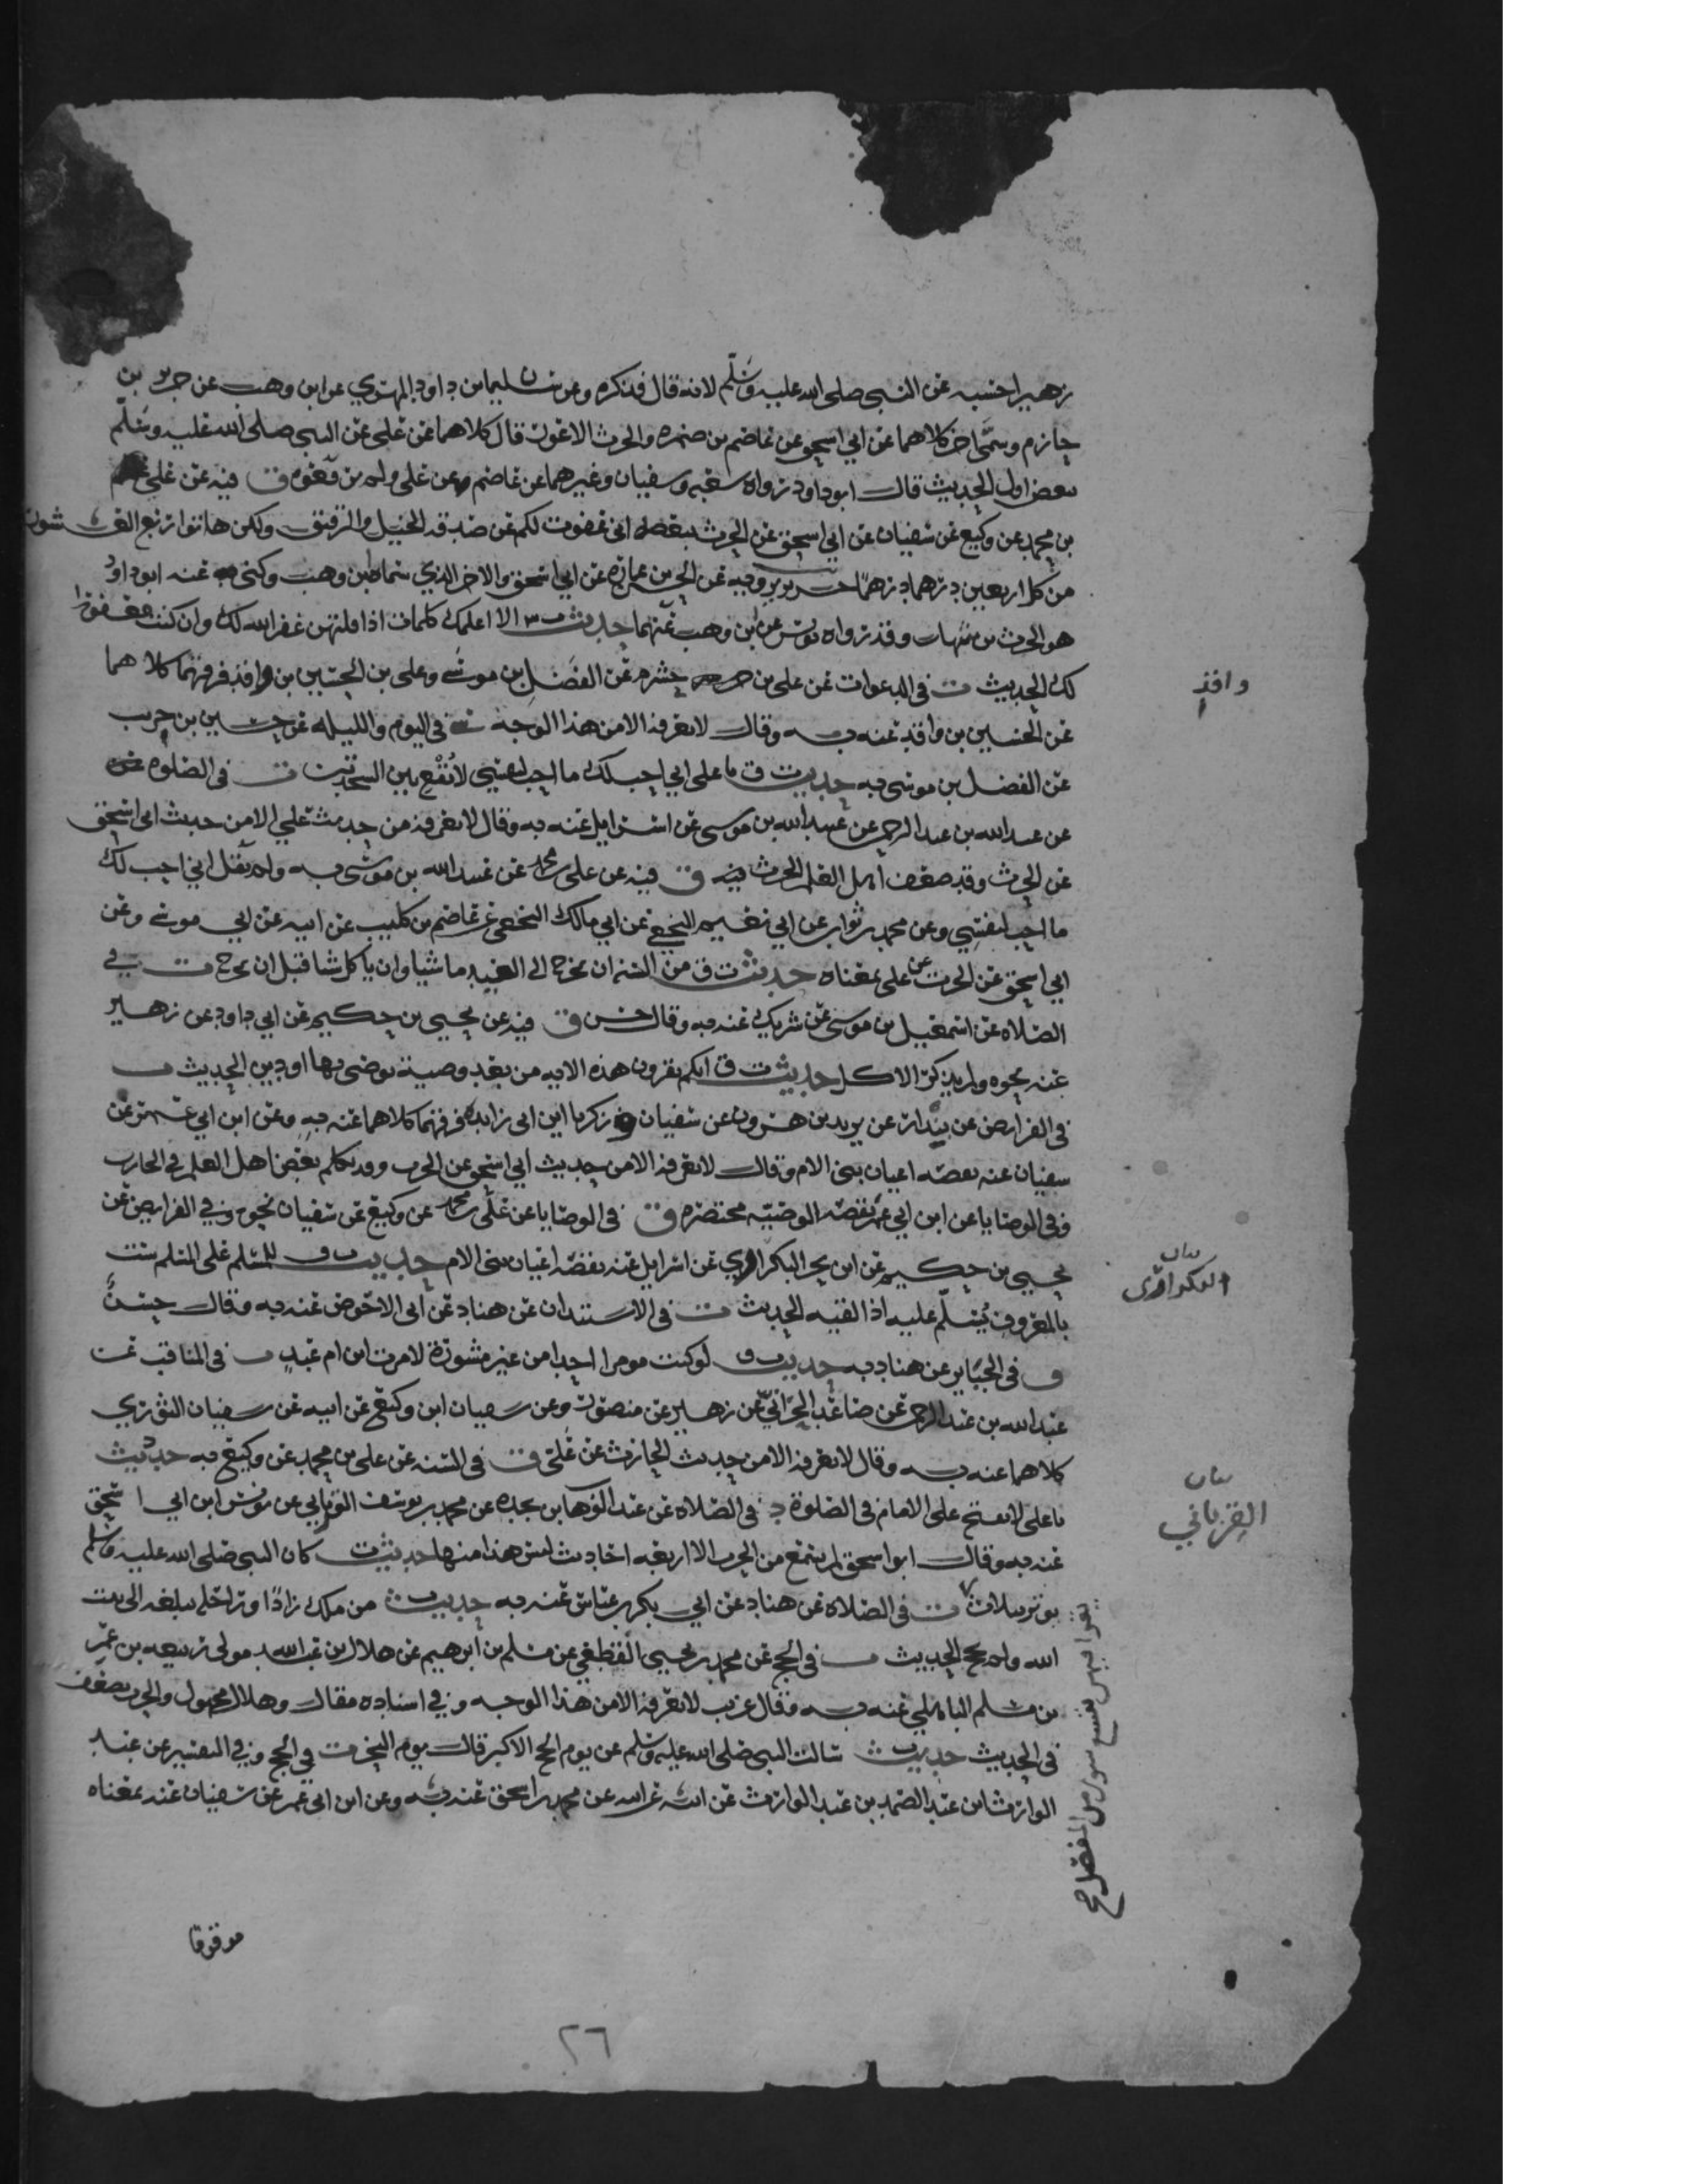 زهير احسبه عن النبي صلى الله عليه وسلم لانه قال فذكره وعن سليمان بن داود المهري عن ابن وهب عن جرير بن
حازم وسمى اخر كلاهما عن ابي اسحق عن عاصم بن ضمرة والحرث الاعور قال كلاهما عن علي عن النبي صلى الله عليه وسلم
ببعض اول الحديث قال ابو داود رواه شعبه وسفيان وغيرهما عن عاصم عن علي ولم يرفعوه ق فيه عن علي
بن محمد عن وكيع عن سفيان عن ابي اسحق عن الحرث ببعضه اني عفوت لكم عن صدقة الخيل والرقيق ولكن هاتوا ربع العشور
من كل اربعين درهما درهما عن الحسن بن عمارة عن ابي اسحق والاخر الذي سماه ابن وهب وكنى عنه ابو داود
هو الحرث بن نبهان وقد رواه يونس عن ابن وهب عنهما حديث الا اعلمك كلمات اذا قلتهن غفر الله لك وان كنت مغفورا
لك الحديث ت في الدعوات عن علي بن خشرم عن الفضل بن موسى وعلي بن الحسين بن واقد فرقهما كلاهما
عن الحسين بن واقد عنه به وقال لا نعرفه الا من هذا الوجه س في اليوم والليله عن حسين بن حريث
عن الفضل بن موسى به حديث ت ق يا علي اني احب لك ما احب لنفسي لا تقع بين السجدتين ت في الصلوة
عن عبد الله بن عبد الرحمن عن عبيد الله بن موسى عن اسرائيل عنه به وقال لا نعرفه من حديث علي الا من حديث ابي اسحق
عن الحرث وقد ضعف اهل العلم الحرث فيه ق فيه عن علي بن محمد عن عبيد الله بن موسى به ولم يقل اني احب لك
ما احب لنفسي وعن محمد بن ثواب عن ابي نعيم النخعي عن ابي مالك النخعي عن عاصم بن كليب عن ابيه عن ابي موسى وعن
ابي اسحق عن الحرث عن علي بمعناه حديث ت ق من السنه ان يخرج الى العيد ماشيا وان ياكل شيا قبل ان يخرج ت في
الصلاه عن اسمعيل بن موسى عن شريك عنه به وقال حسن ق فيه عن يحيى بن حكيم عن ابي داود عن زهير
عنه بنحوه ولم يذكر الاكل حديث ت ق انكم تقرون هذه الايه من بعد وصية توصى بها او دين الحديث ت
في الفرايض عن بندار عن يزيد بن هرون عن سفيان وزكريا ابن ابي زايده فرقهما كلاهما عنه به وعن ابن ابي عمر عن
سفيان عنه بعضه اعيان بني الام وقال لا نعرفه الا من حديث ابي اسحق عن الحرث وقد تكلم بعض اهل العلم في الحارث
وفي الوصايا عن ابن ابي عمر بقصه الوصيه مختصره ق في الوصايا عن علي بن محمد عن وكيع عن سفيان نحوه وفي الفرايض عن
يحيى بن حكيم عن ابن بحر البكراوي عن اسرائيل عنه بقصه اعيان بني الام حديث ت ق للمسلم على المسلم ست
بالمعروف يسلم عليه اذا لقيه الحديث ت في الاستئذان عن هناد عن ابي الاحوص عنه به وقال حسن
ق في الجنايز عن هناد به حديث ت ق لو كنت مومرا احدا من غير مشورة لامرت ابن ام عبد ت في المناقب عن
عبد الله بن عبد الرحمن عن صاعد الحراني عن زهير عن منصور وعن سفيان ابن وكيع عن ابيه عن سفيان الثوري
كلاهما عنه به وقال لا نعرفه الا من حديث الحارث عن علي ق في السنه عن علي بن محمد عن وكيع به حديث
يا علي لا تفتح على الامام في الصلوة د في الصلاه عن عبد الوهاب بن نجده عن محمد بن يوسف الفريابي عن يونس ابن ابي اسحق
عنه به وقال ابو اسحق لم يسمع من الحرث الا اربعه احاديث ليس هذا منها حديث ت كان النبي صلى الله عليه وسلم
يوتر بثلاث ت في الصلاه عن هناد عن ابي بكر بن عياش عنه به حديث ت من ملك زادا وراحلة تبلغه الى بيت
الله ولم يحج الحديث ت في الحج عن محمد بن يحيى القطعي عن مسلم بن ابرهيم عن هلال بن عبد الله مولى ربيعه بن عمرو
بن مسلم الباهلي عنه به وقال غريب لا نعرفه الا من هذا الوجه وفي اسناده مقال وهلال مجهول والحرث يضعف
في الحديث حديث ت سالت النبي صلى الله عليه وسلم عن يوم الحج الاكبر قال يوم النحر ت في الحج وفي التفسير عن عبد
الوارث ابن عبد الصمد بن عبد الوارث عن ابيه عن ابيه عن محمد بن اسحق عنه به وعن ابن ابي عمر عن سفيان عنه بمعناه
موقوفا
وافد
بيان
البكراوي
بيان
الفريابي
٢٦